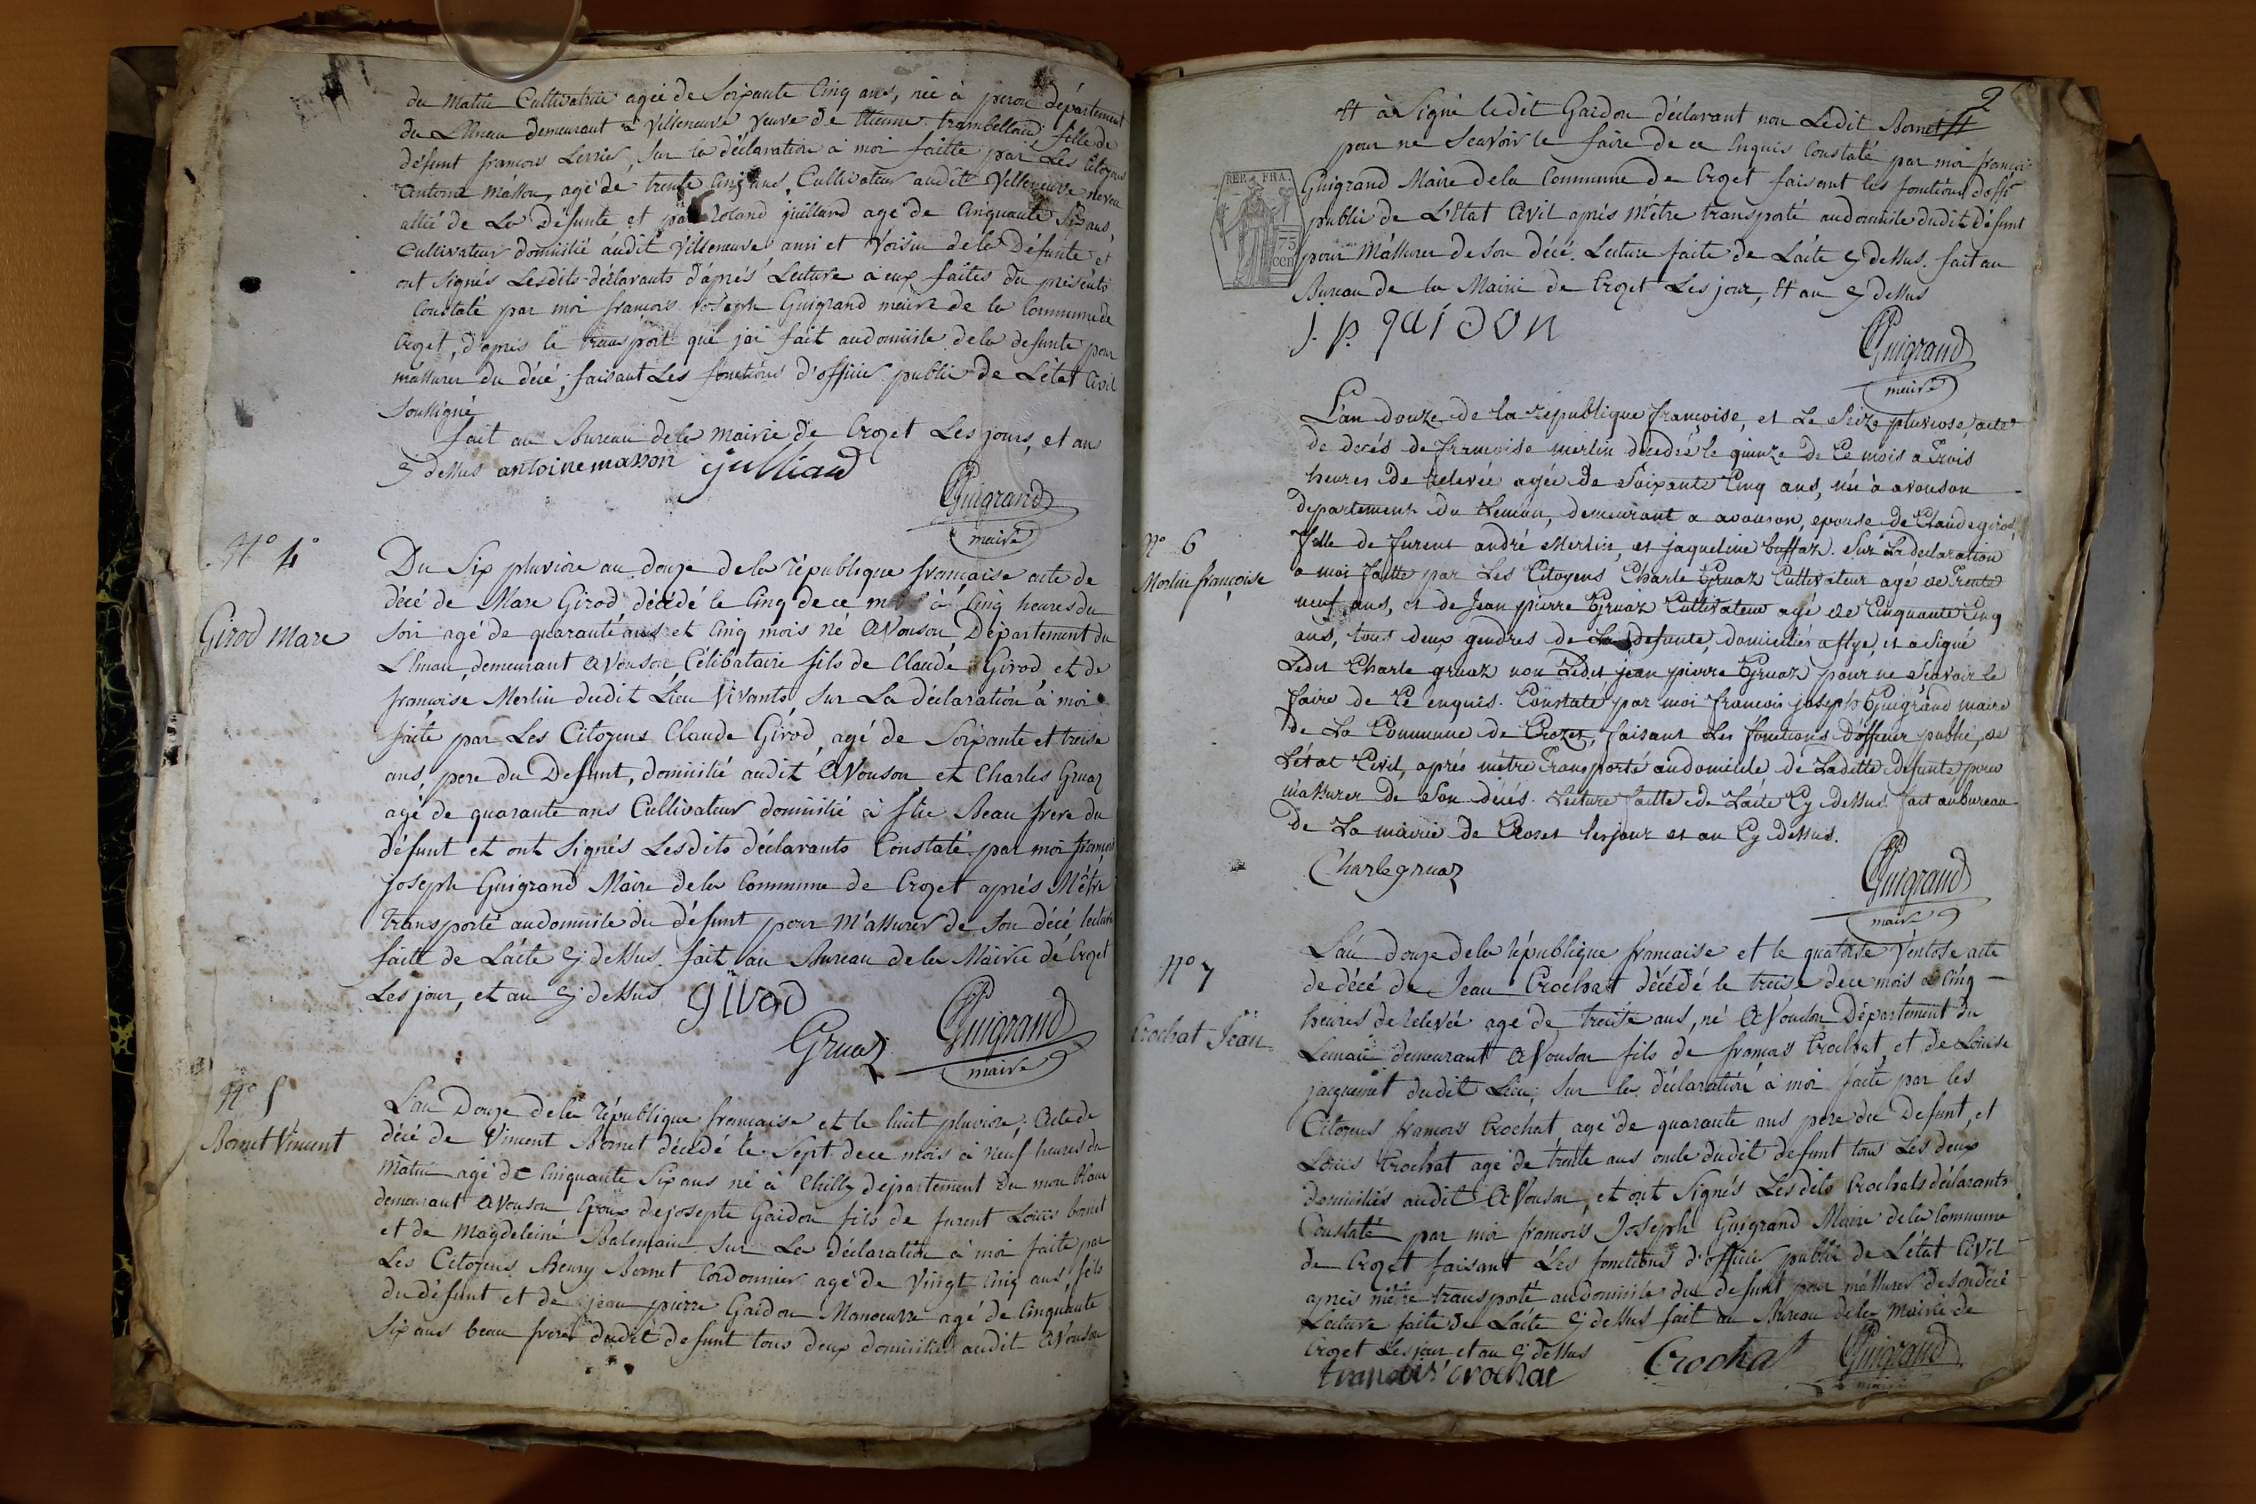 du Matin Cultivatrice agée de Soixante Cinq ans, née à peron département
du Lléman demeurant à Villeneuve veuve de Etienne trambelland fille de
défunt francois Levrier, Sur la déclaration à moi faitte par Les Citoyens
antoine Masson, agé de trente Cinq ans, Cultivateur audit Villeneuve neveu
allié de La Défunte et par Roland juilland agé de Cinquante Six ans,
Cultivateur domicilié audit Villeneuve ami et Voisin de la Défunte et
ont signés Lesdits déclarants d'aprés Lecture à eux faites du présents
Constaté par moi francois Joseph Guigrand maire de la Commune de
Crozet, d'aprés le transport que j'ai fait au domicile de la defunte pour
m'assurer du décé, faisant Les fonctions d'officier public de L'état Civil
Soussigné
fait au Bureau de la Mairie de Crozet Les jours, et an
Cy dessus antoine masson julliand
Guigrand
maire
N° 4°
Girod Marc
Du Six pluviose an douze de la république française acte de
décé de Marc Girod, décédé le Cinq de ce mois à Cinq heures du
Soir agé de quarante ans et Cinq mois né AVouson Département du
Lléman, demeurant AVouson Célibataire fils de Claude Girod, et de
françoise Merlin dudit Lieu Vivants, Sur La déclaration à moi
faite par Les Citoyens Claude Girod, agé de Soixante et treise
ans, pere du Defunt, domicilié audit AVouson et Charles Gruaz
agé de quarante ans Cultivateur domicilié à flie Beau frere du
défunt et ont Signés Lesdits déclarants Constaté par moi françois
joseph Guigrand Maire de la Commune de Crozet aprés M'être
transporté au domicile du défunt pour M'assurer de Son décé lecture
faite de L'acte Cy dessus. fait au Bureau de la Mairie de Crozet
Les jour, et an Cy dessus girod
Gruaz Guigrand
maire
N° 5
Bornet Vincent
L'an Douze de la république francaise et le huit pluviose, Acte de
décé de Vincent Bornet décédé le Sept de ce mois à neuf heures du
Matin agé de Cinquante Six ans né à Chilly département Du mon blanc
demeurant AVouson Epoux de josepte Gaidon fils de furent Louis bornet
et de Magdeleine Balemain Sur La déclaration à moi faite par
Les Citoyens Henry Bornet Cordonnier agé de Vingt Cinq ans, fils
du défunt et de jean pierre Gaidon Manoeuvre agé de Cinquante
Six ans beau frere dudit defunt tous deux domiciliés audit AVouson
2
Et à Signé ledit Gaidon déclarant non Ledit Bornet
pour ne Scavoir le faire de ce Enquis Constaté par moi françois
Guigrand Maire de la Commune de Crozet faisant les fonctions d'offi
public de L'Etat Civil aprés m'être transporté au domicile dudit Défunt
pour M'assurer de Son décé. Lecture faite de L'acte Cy dessus. fait au
Bureau de la Mairie de Crozet Les jour, Et an Cy dessus
REP. FRA.
75
CEN
J. P. gaidon
Guigrand
maire
L'an douze de la république françoise, et Le Seize pluviose, acte
de decés de francoise merlin décedée le quinze de Ce mois a Trois
heures de relevée agée de Soixante Cinq ans, née à avouson
département du Leman, demeurant a avouson, epouse de Claude girod,
N° 6
Merlin françoise
fille de furent andré Merlin, et jaqueline buffaz. Sur La declaration
a moi faitte par Les Citoyens Charle Gruaz Cultivateur agé de Trente
neuf ans, et de Jean pierre Gruaz Cultivateur agé de Cinquante Cinq
ans, tous deux gendres de La defunte, domiciliés a flye, et a Signé
Ledit Charle gruaz non Ledit jean pierre Gruaz pour ne Scavoir le
faire de Ce enquis. Constaté par moi francois joseph Guigrand maire
de La Commune de Crozet, faisant Les fonctions d'officier public, de
L'état Civil, aprés m'être Transporté au domicile de Laditte defunte, pour
m'assurer de Son décés. Lecture faitte de L'acte Cy dessus. fait au bureau
de La mairie de Crozet les jour et an Cy dessus.
Charle gruaz
Guigrand
maire
N° 7
Crochat Jean
L'an douze de la république francaise et le quatorse Ventose acte
de décé de Jean Crochat décédé le treise de ce mois à Cinq
heures de relevée agé de treise ans, né AVouson Département du
Leman demeurant AVouson fils de francois Crochat, et de Louise
jacquemet dudit Lieu, Sur la déclaration à moi faite par les
Citoyens francois Crochat agé de quarante ans pere du Defunt, et
Louis Crochat agé de trente ans oncle dudit defunt tous Les deux
domiciliés audit AVouson, et ont Signés Lesdits Crochats déclarants
Constaté par moi francois Joseph Guigrand Maire de la Commune
de Crozet faisant Les fonctions d'officier public de L'état Civil
aprés m'être transporté au domicile du defunt pour m'assurer de son décé
Lecture faite de L'acte Cy dessus fait au Bureau de la Mairie de
Crozet Les jour et an Cy dessus
francois crochat Crochat Guigrand
maire